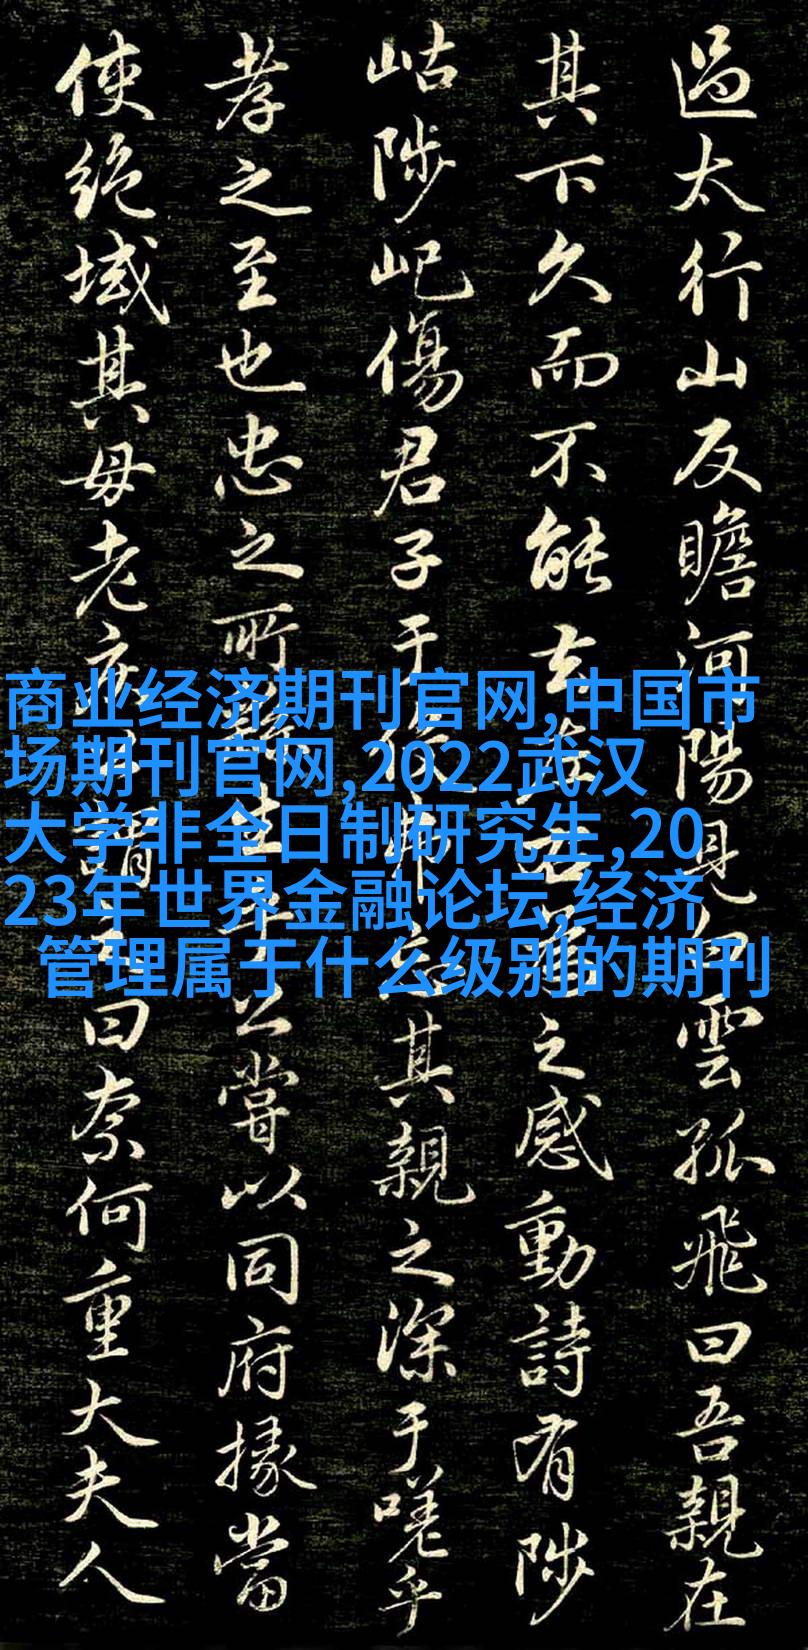 過太行山反瞻河陽見白雲孤飛曰吾親在
其下久而不能去之感動詩有陟
岵陟屺傷君子于役其親之深于嗟乎
孝之至也忠之所生公嘗以同府掾當
使絶域其母老謂曰奈何重大夫人
商业经济期刊官网,中国市
场期刊官网,2022武汉
大学非全日制研究生,20
23年世界金融论坛,经济
管理属于什么级别的期刊